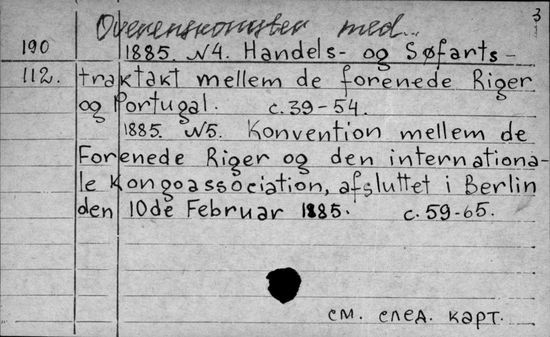 3
Overenskomster med..
190 1885. N4. Handels- og Søfarts-
112. traktakt mellem de forenede Riger
og Portugal. с. 39-54.
1885. N5. Konvention mellem de
Forenede Riger og den internationa-
le Kongoassociation, afsluttet i Berlin
den 10de Februar 1885. с. 59-65.
см. след. карт.